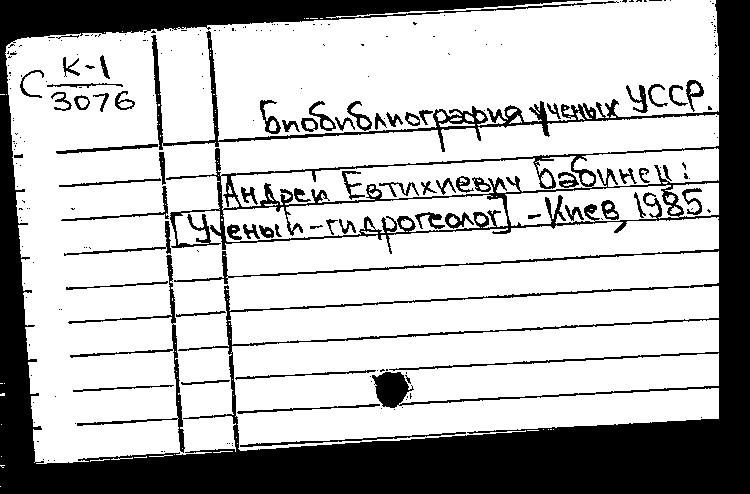 С К-1
3076
Биобиблиография ученых УССР.
Андрей Евтихиевич Бабинец:
[Ученый-гидрогеолог]. - Киев, 1985.